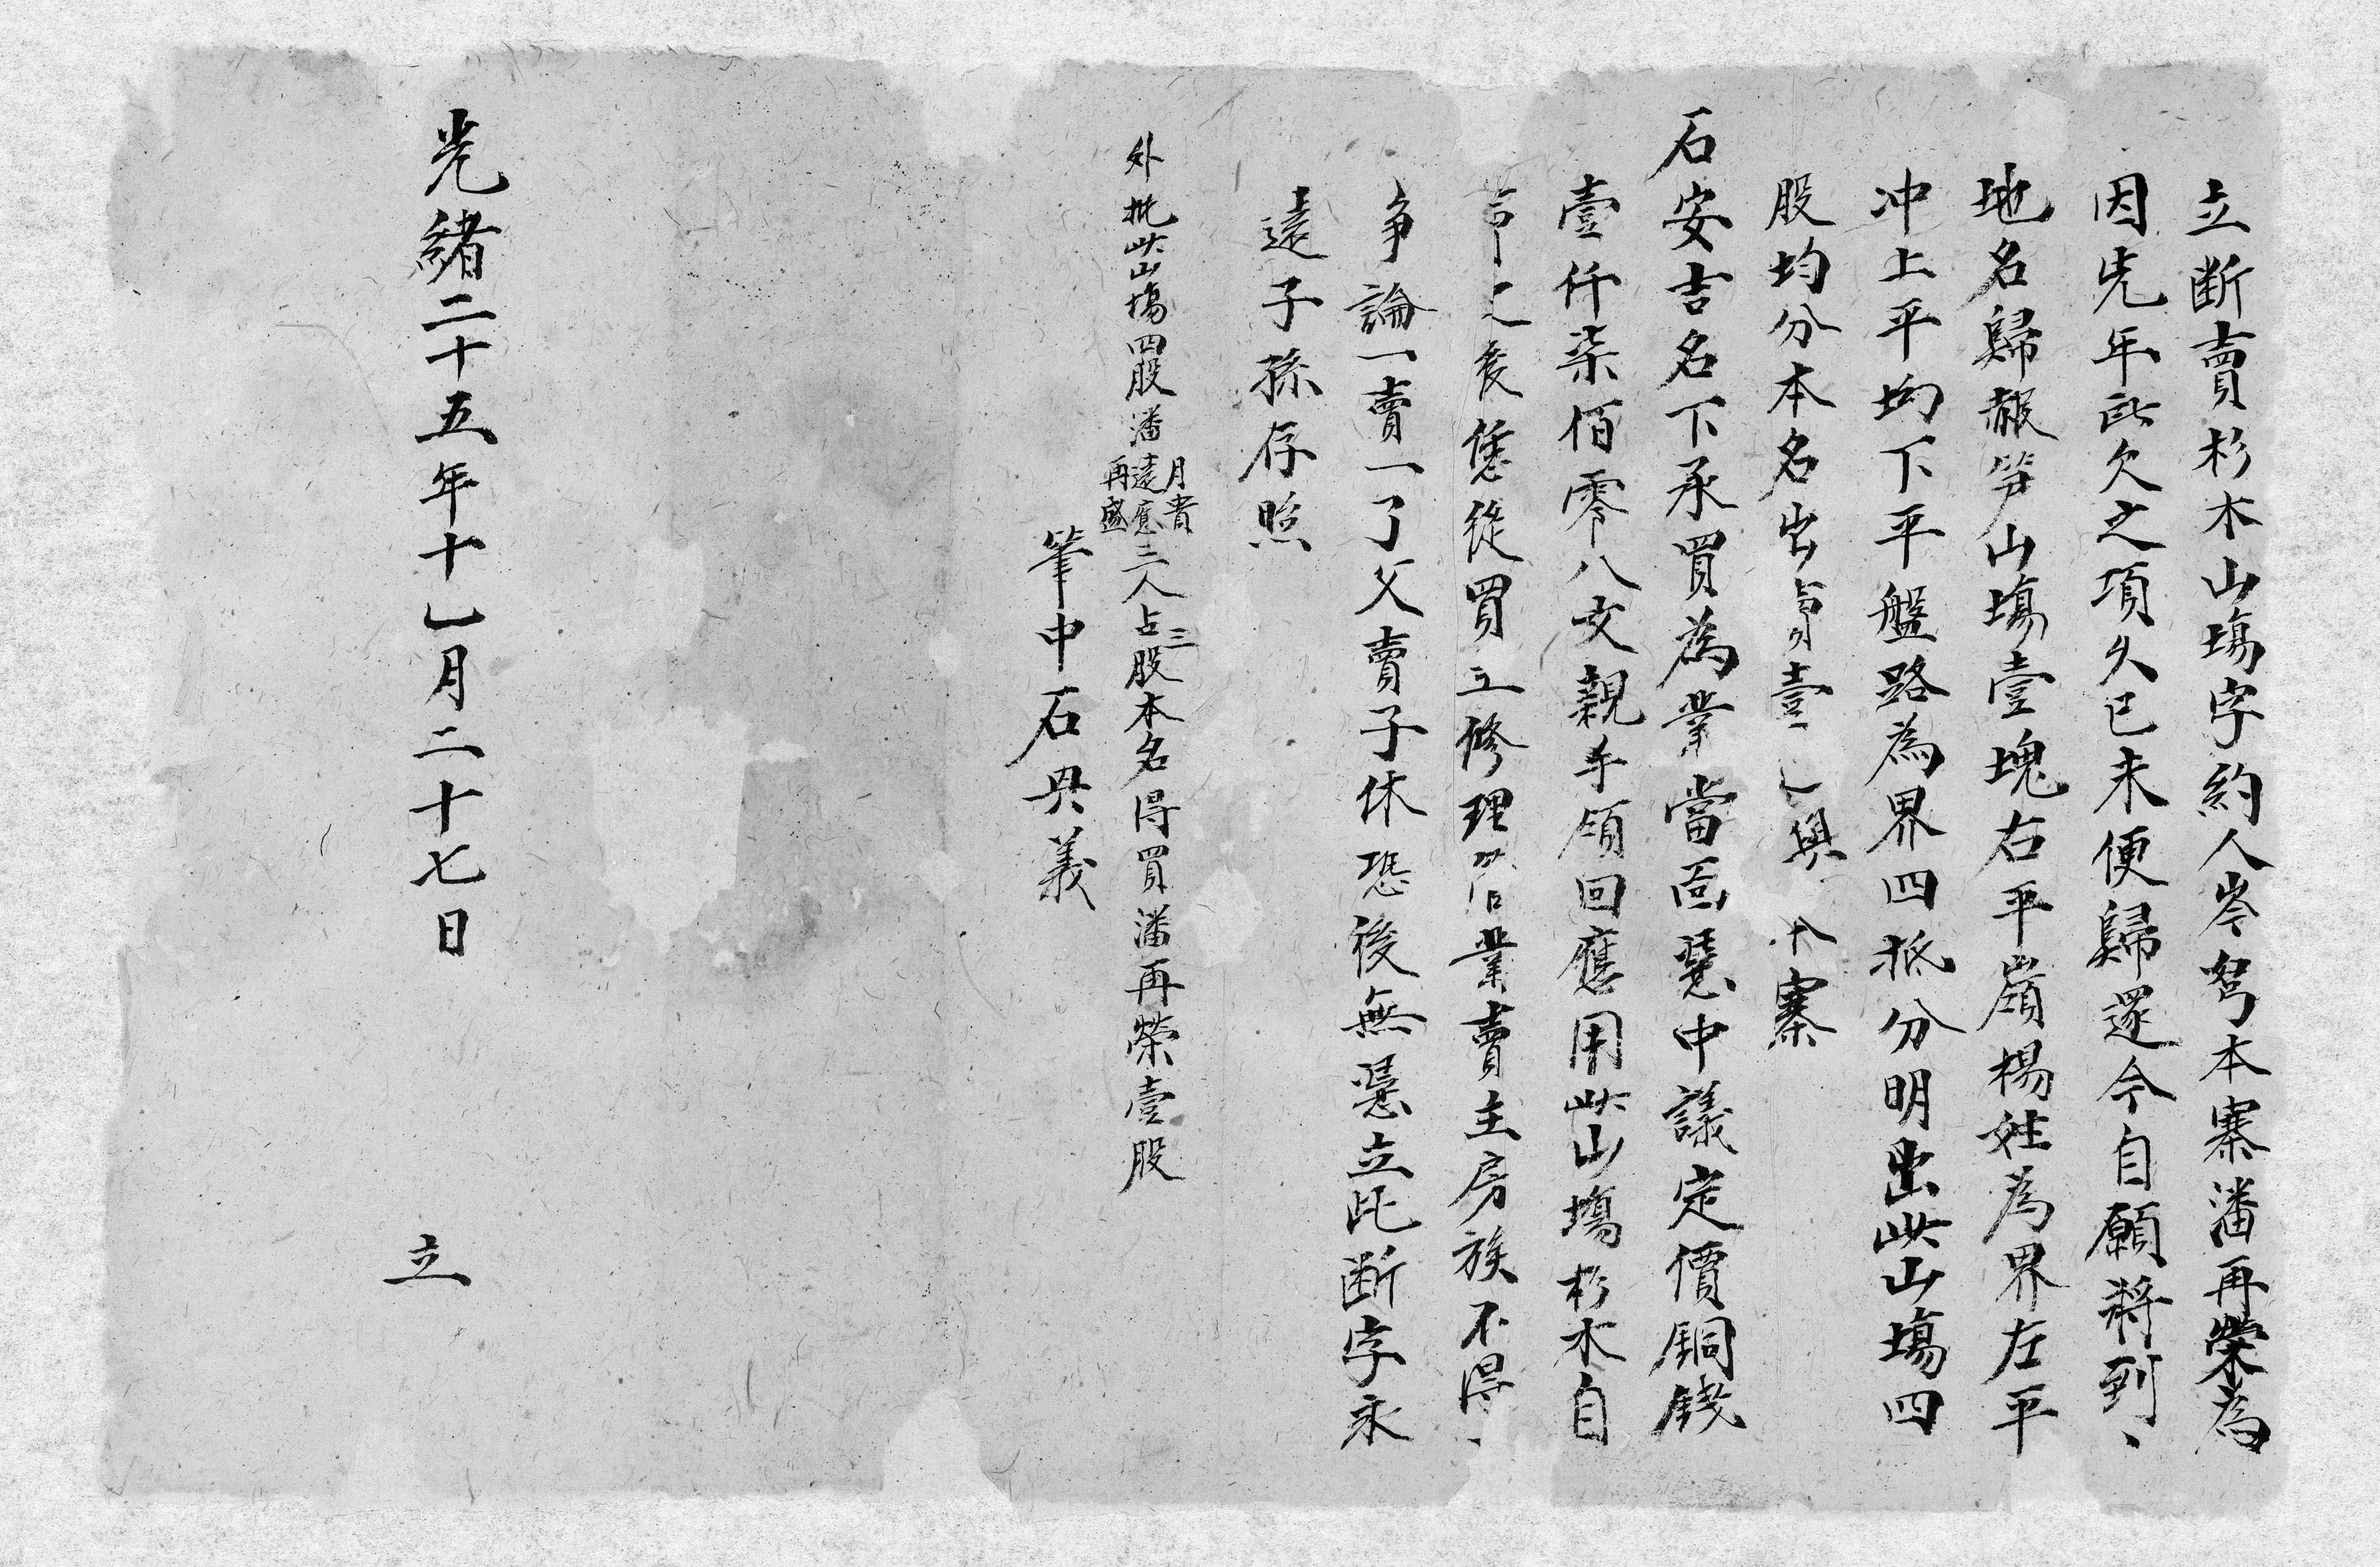 立断賣杉木山塲字約人岑孥本寨潘再榮為
因先年欠之項久已未便歸還今自願將到
地名歸報笋山塲壹塊右平嶺楊姓為界左平
冲上平均下平盤路為界四抵分明出此山塲四
股均分本名出賣壹與寨
石安吉名下承買為業當面憑中議定價銅錢
壹仟柒佰零八文親手領回應用此山塲杉木自
之後憑從買主修理管業賣主房族不得
争論一賣一了父賣子休恐後無憑立此断字永
遠子孫存照
外批此山塲四股潘月貴遠應再盛三人占三股本名得買潘再榮壹股
筆中石兴義
光緒二十五年十乚月二十七日 立